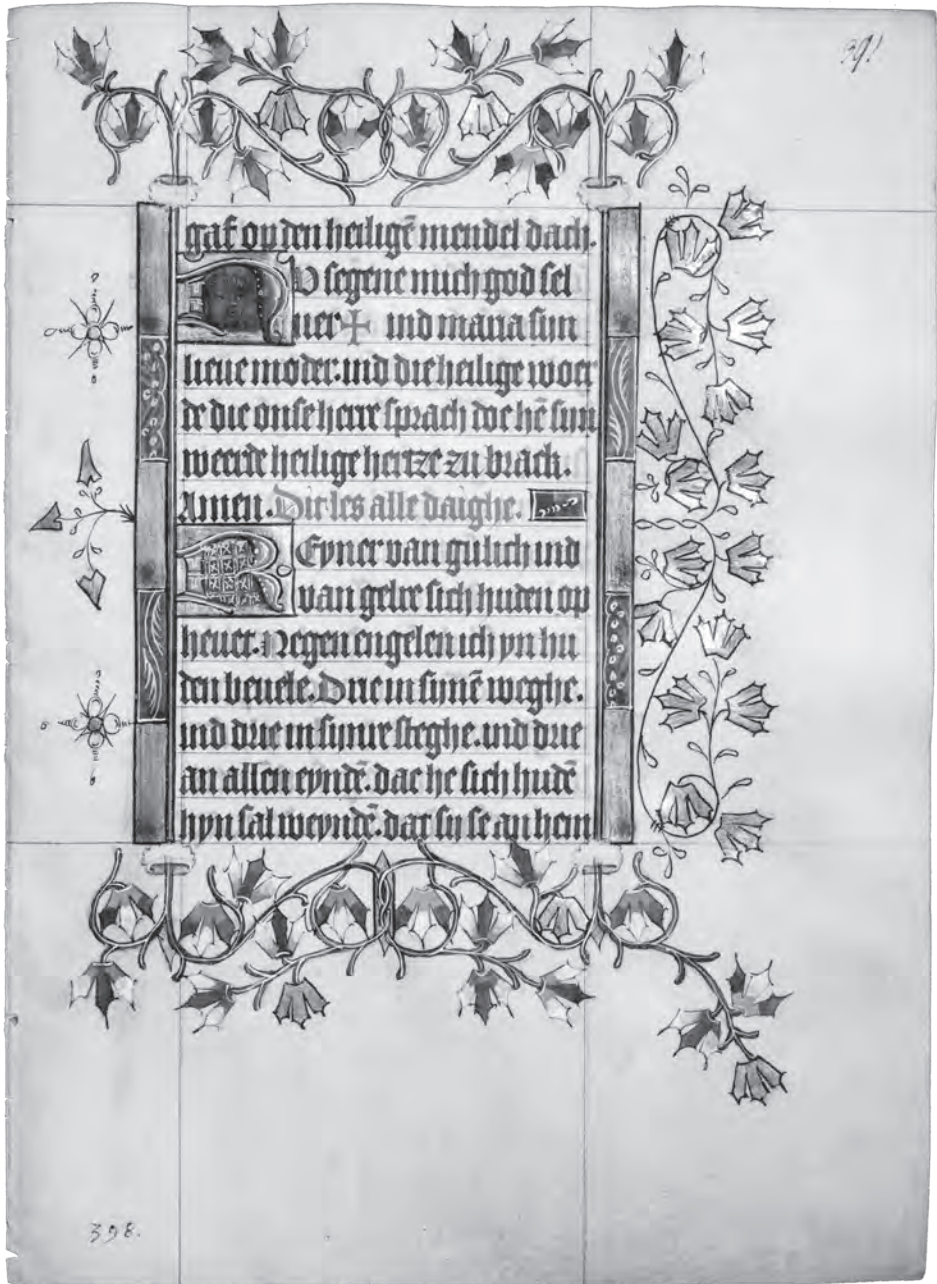 391
gaf op den heiligē mendel dach.
NV segene mich god sel
uer + ind maria sijn
lieue moder. ind die heilige woer
de die onse herre sprach doe hē sijn
weerde heilige hertze zu brach.
Amen. Dit les alle daighe.
REyner van gulich ind
van gelre sich huden op
heuet. Negen engelen ich yn hu
den beuele. Drie in sijnē weghe.
ind drie in sijnre steghe. ind drie
an allen eyndē. dae he sich hudē
hyn sal weyndē. dat sij se an hem
398.